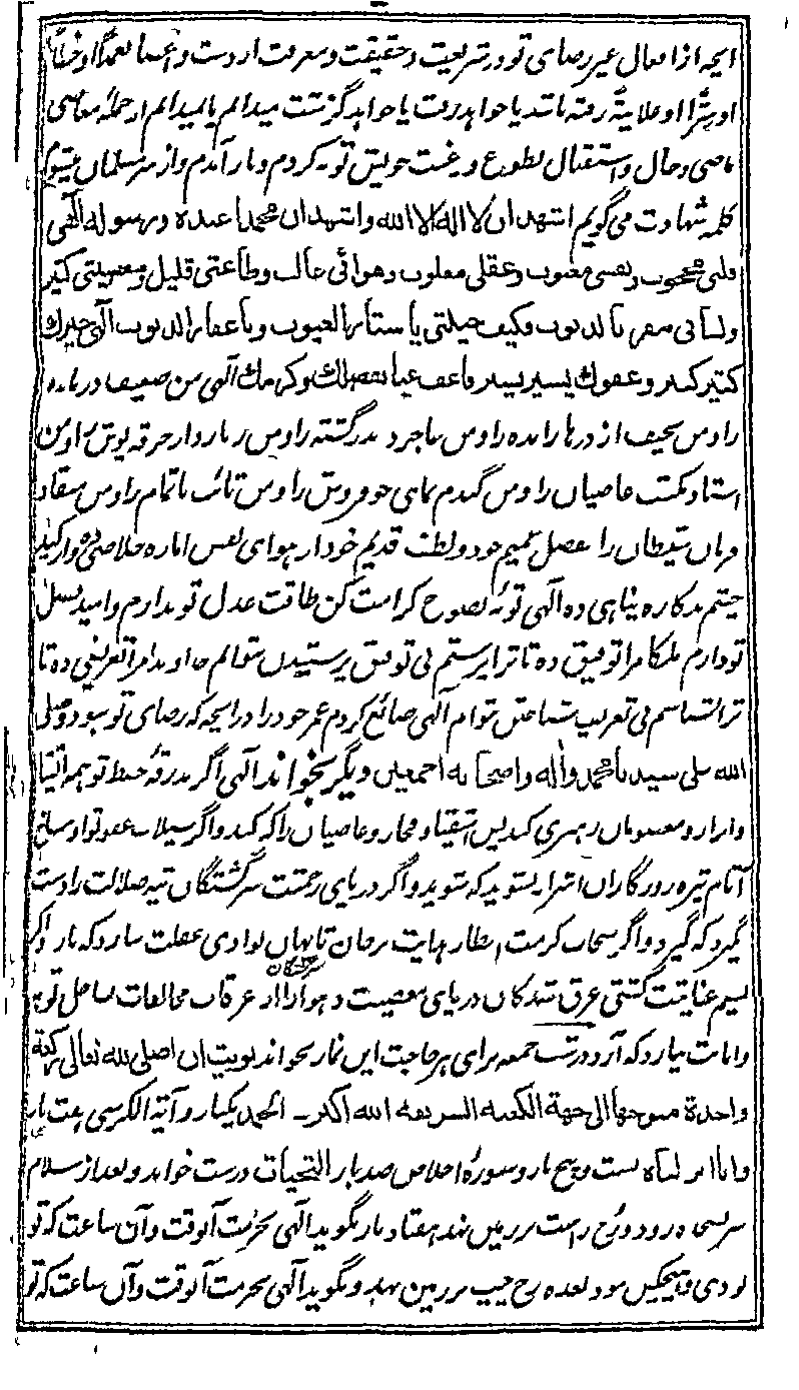 انچه از افعال غیر رضای تو در شریعت و حقیقت و معرفت از دست و عمدا او خطأ
او سرّا او علانیةً رفته باشد یا خواهد رفت یا خواهد گزشت میدانم یا نمیدانم از جمله معاصی
ماضی و حال و استقبال بطوع و رغبت خویش توبه کردم و باز آمدم و از سر مسلمان میشوم
کلمه شهادت می‌گویم اشهد ان لا اله الا الله و اشهد ان محمدا عبده و رسوله الهی
قلبی محجوب و نفسی معیوب و عقلی مغلوب و هوائی غالب و طاعتی قلیل و معصیتی کثیر
و لسانی مقر بالذنوب فکیف حیلتی یا ستار العیوب و یا غفار الذنوب الهی خیرک
کثیر کبیر و عفوک یسیر یسیر فاعف عنا بفضلک و کرمک الهی من ضعیف درمانده
را و من نحیف از درها رانده را و من ماجرد بدر گشته را و من زنار دار خرقه پوش را و من
استاد مکتب عاصیان را و من گندم نمای جو فروش را و من تائب ناتمام را و من منقاد
فرمان شیطان را بفضل عمیم خود و لطف قدیم خود از هوای نفس اماره خلاصی ده و از کید
چشم بدکاره پناهی ده الهی توبه نصوح کرامت کن طاقت عدل تو ندارم و امید بفضل
تو دارم ملکا مرا توفیق ده تا ترا پرستم بی توفیق پرستیدن نتوانم خداوندا مرا تعریفی ده تا
ترا شناسم بی تعریف شناختن نتوانم الهی ضائع کردم عمر خود را در انچه که رضای تو نبود و صلی
الله علی سیدنا محمد و اله و اصحابه اجمعین دیگر بخواند الهی اگر بدرقهٔ حفظ تو همه اتقیا
و ابرار و معصومان رهبری کند پس اشقیا و فجار و عاصیان را که کند و اگر سیلاب عفو تو اوساخ
آثام تیره روزگاران اشرار بشوید که شوید و اگر دریای رحمتت سرگشتگان تیه ضلالت را دست
گیرد که گیرد و اگر سحاب کرمت امطار هدایت بر جان تائبان بوادی غفلت نبارد که بارد و اگر
نسیم عنایتت کشتی غرق شدگان دریای معصیت و هوا را از غرقاب مخالفات بساحل توبه
و انابت نیارد که آرد در شب جمعه برای هر حاجت این نماز بخواند نویت ان اصلی لله تعالی رکعة
واحدة متوجها الی جهة الکعبة الشریفة الله اکبر الحمد یکبار و آیة الکرسی هفت بار
و انا انزلناه بست و پنج بار و سوره اخلاص صد بار التحیات درست خواند و بعد از سلام
سر بسجده رود و رخ راست بر زمین نهد هفتاد بار بگوید الهی بحرمت آنوقت و آن ساعت که تو
بودی و هیچکس نبود بعده رخ چپ بر زمین نهد و بگوید الهی بحرمت آنوقت و آن ساعت که تو